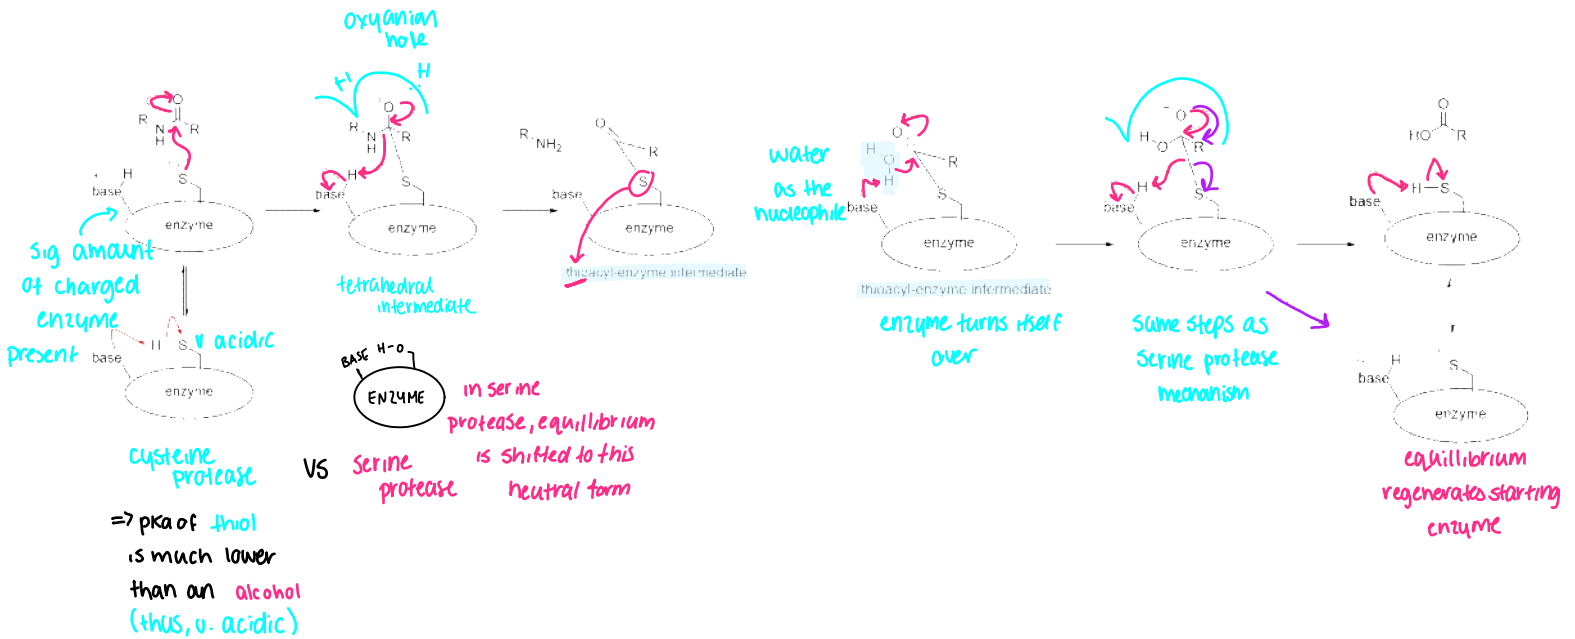 oxyanion
hole
H
H
O
R
N
H
R
H
base
S
enzyme
sig amount
of charged
enzyme
present
base
H
S
v acidic
enzyme
cysteine
protease
=> pKa of thiol
is much lower
than an alcohol
(thus, v. acidic)
O
R
N
H
R
H
base
S
enzyme
tetrahedral
intermediate
BASE H-O
ENZYME
VS
serine
protease
in serine
protease, equillibrium
is shifted to this
neutral form
R
NH2
O
R
base
S
enzyme
thioacyl-enzyme intermediate
water
as the
nucleophile
O
H
O
H
R
base
S
enzyme
thioacyl-enzyme intermediate
enzyme turns itself
over
O
HO
R
H
base
S
enzyme
same steps as
serine protease
mechanism
O
HO
R
base
H-S
enzyme
H
base
S
enzyme
equillibrium
regenerates starting
enzyme